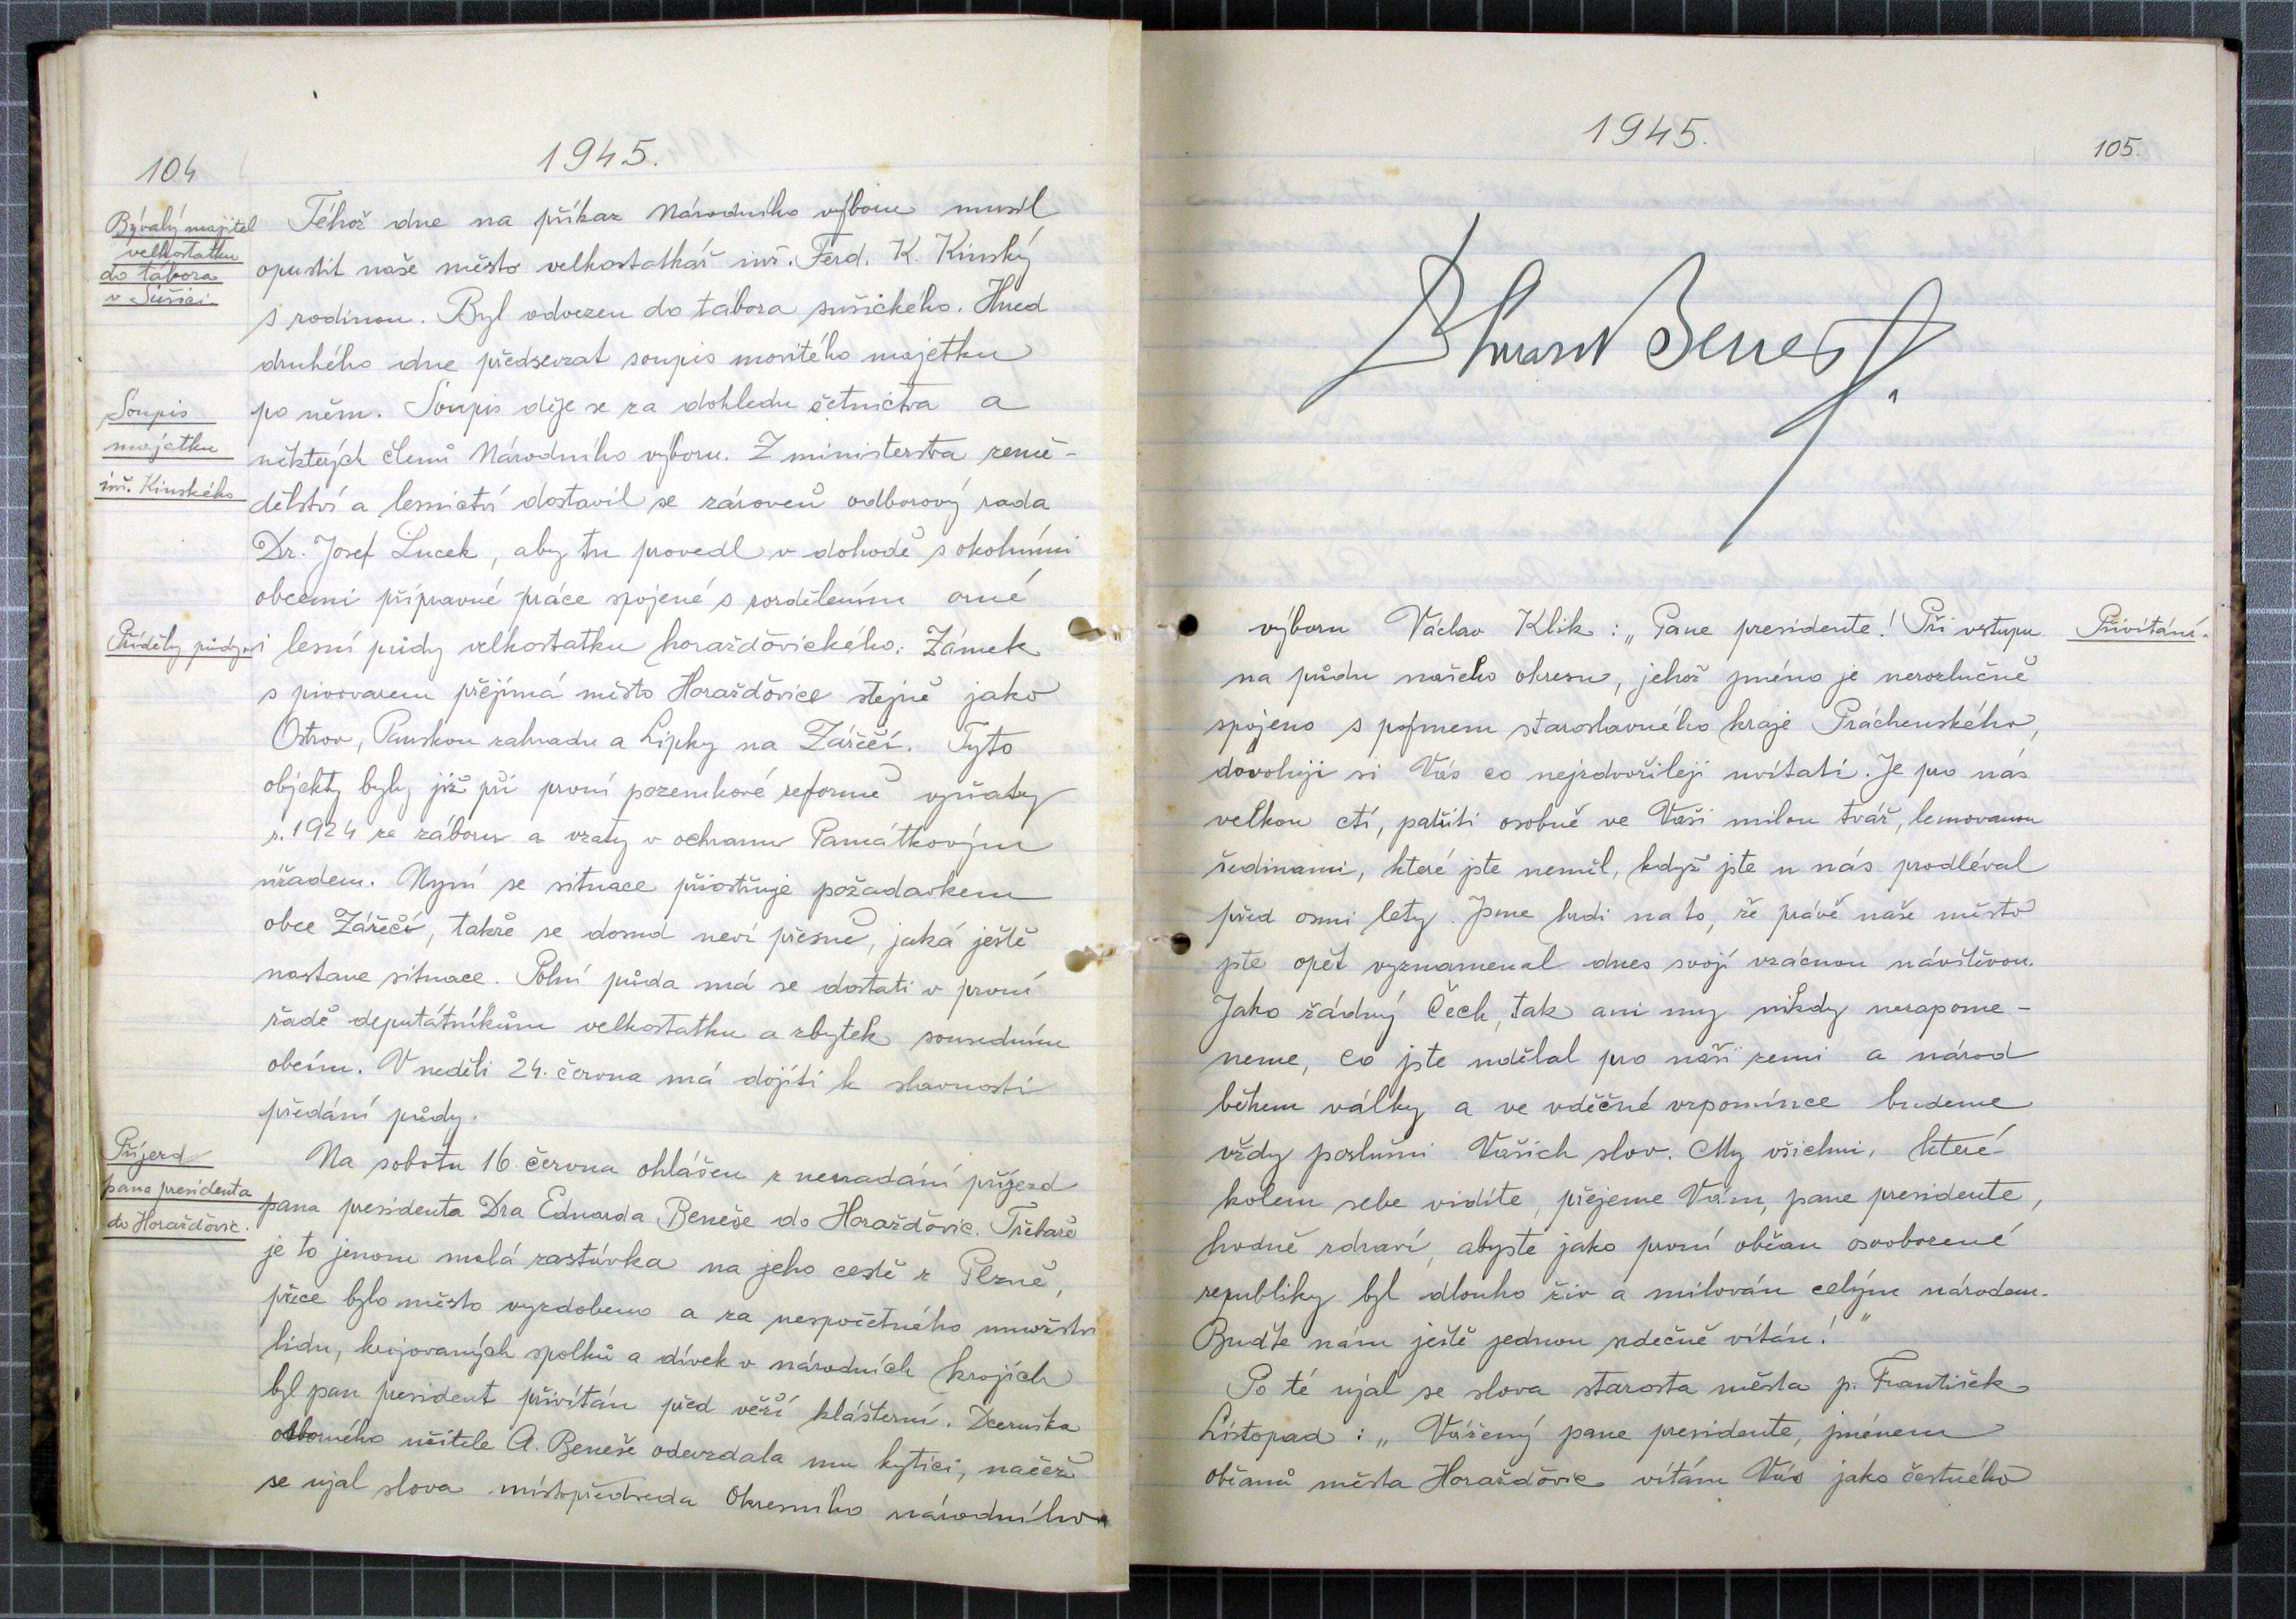 104
1945.
Bývalý majitel
velkostatku
do tábora
v Sušici
Téhož dne na příkaz Národního výboru musil
opustit naše město velkostatkář inž. Ferd. K. Kinský
s rodinou. Byl odvezen do tábora sušického. Hned
druhého dne předsevzat soupis movitého majetku
Soupis
majetku
inž. Kinského
po něm. Soupis děje se za dohledu četnictva a
některých členů Národního výboru. Z ministerstva země-
dělství a lesnictví dostavil se zároveň odborový rada
Dr. Josef Lucek, aby tu provedl v dohodě s okolními
obcemi přípravné práce spojené s rozdělením orné
Příděly půdy.
i lesní půdy velkostatku horažďovického. Zámek
s pivovarem přejímá město Horažďovice stejně jako
Ostrov, Panskou zahradu a Lipky na Zářečí. Tyto
objekty byly již při první pozemkové reformě vyňaty
r. 1924 ze záboru a vzaty v ochranu Památkovým
úřadem. Nyní se situace přiostřuje požadavkem
obce Zářečí, takže se dosud neví přesně, jaká ještě
nastane situace. Polní půda má se dostati v první
řadě deputátníkům velkostatku a zbytek sousedním
obcím. V neděli 24. června má dojíti k slavnosti
předání půdy.
Příjezd
pana presidenta
do Horažďovic.
Na sobotu 16. června ohlášen z nenadání příjezd
pana presidenta Dra Eduarda Beneše do Horažďovic. Třebaže
je to jenom malá zastávka na jeho cestě z Plzně,
přece bylo město vyzdobeno a za nespočetného množství
lidu, krojovaných spolků a dívek v národních krojích
byl pan president přivítán před věží klášterní. Dceruška
odborného učitele A. Beneše odevzdala mu kytici, načež
se ujal slova místopředseda Okresního národního
1945.
105.
Eduard Beneš.
výboru Václav Klik: „Pane presidente! Při vstupu
Přivítání.
na půdu našeho okresu, jehož jméno je nerozlučně
spojeno s pojmem staroslavného kraje Práchenského,
dovoluji si Vás co nejzdvořileji uvítati. Je pro nás
velkou ctí, patřiti osobně ve Vaši milou tvář, lemovanou
šedinami, které jste neměl, když jste u nás prodléval
před osmi lety. Jsme hrdi na to, že právě naše město
jste opět vyznamenal dnes svojí vzácnou návštěvou.
Jako žádný Čech, tak ani my nikdy nezapome-
neme, co jste udělal pro naši zemi a národ
během války a ve vděčné vzpomínce budeme
vždy poslušni Vašich slov. My všichni, které
kolem sebe vidíte, přejeme Vám, pane presidente,
hodně zdraví, abyste jako první občan osvobozené
republiky byl dlouho živ a milován celým národem.
Buďte nám ještě jednou srdečně vítán!"
Po té ujal se slova starosta města p. František
Listopad: „Vážený pane presidente, jménem
občanů města Horažďovic vítám Vás jako čestného